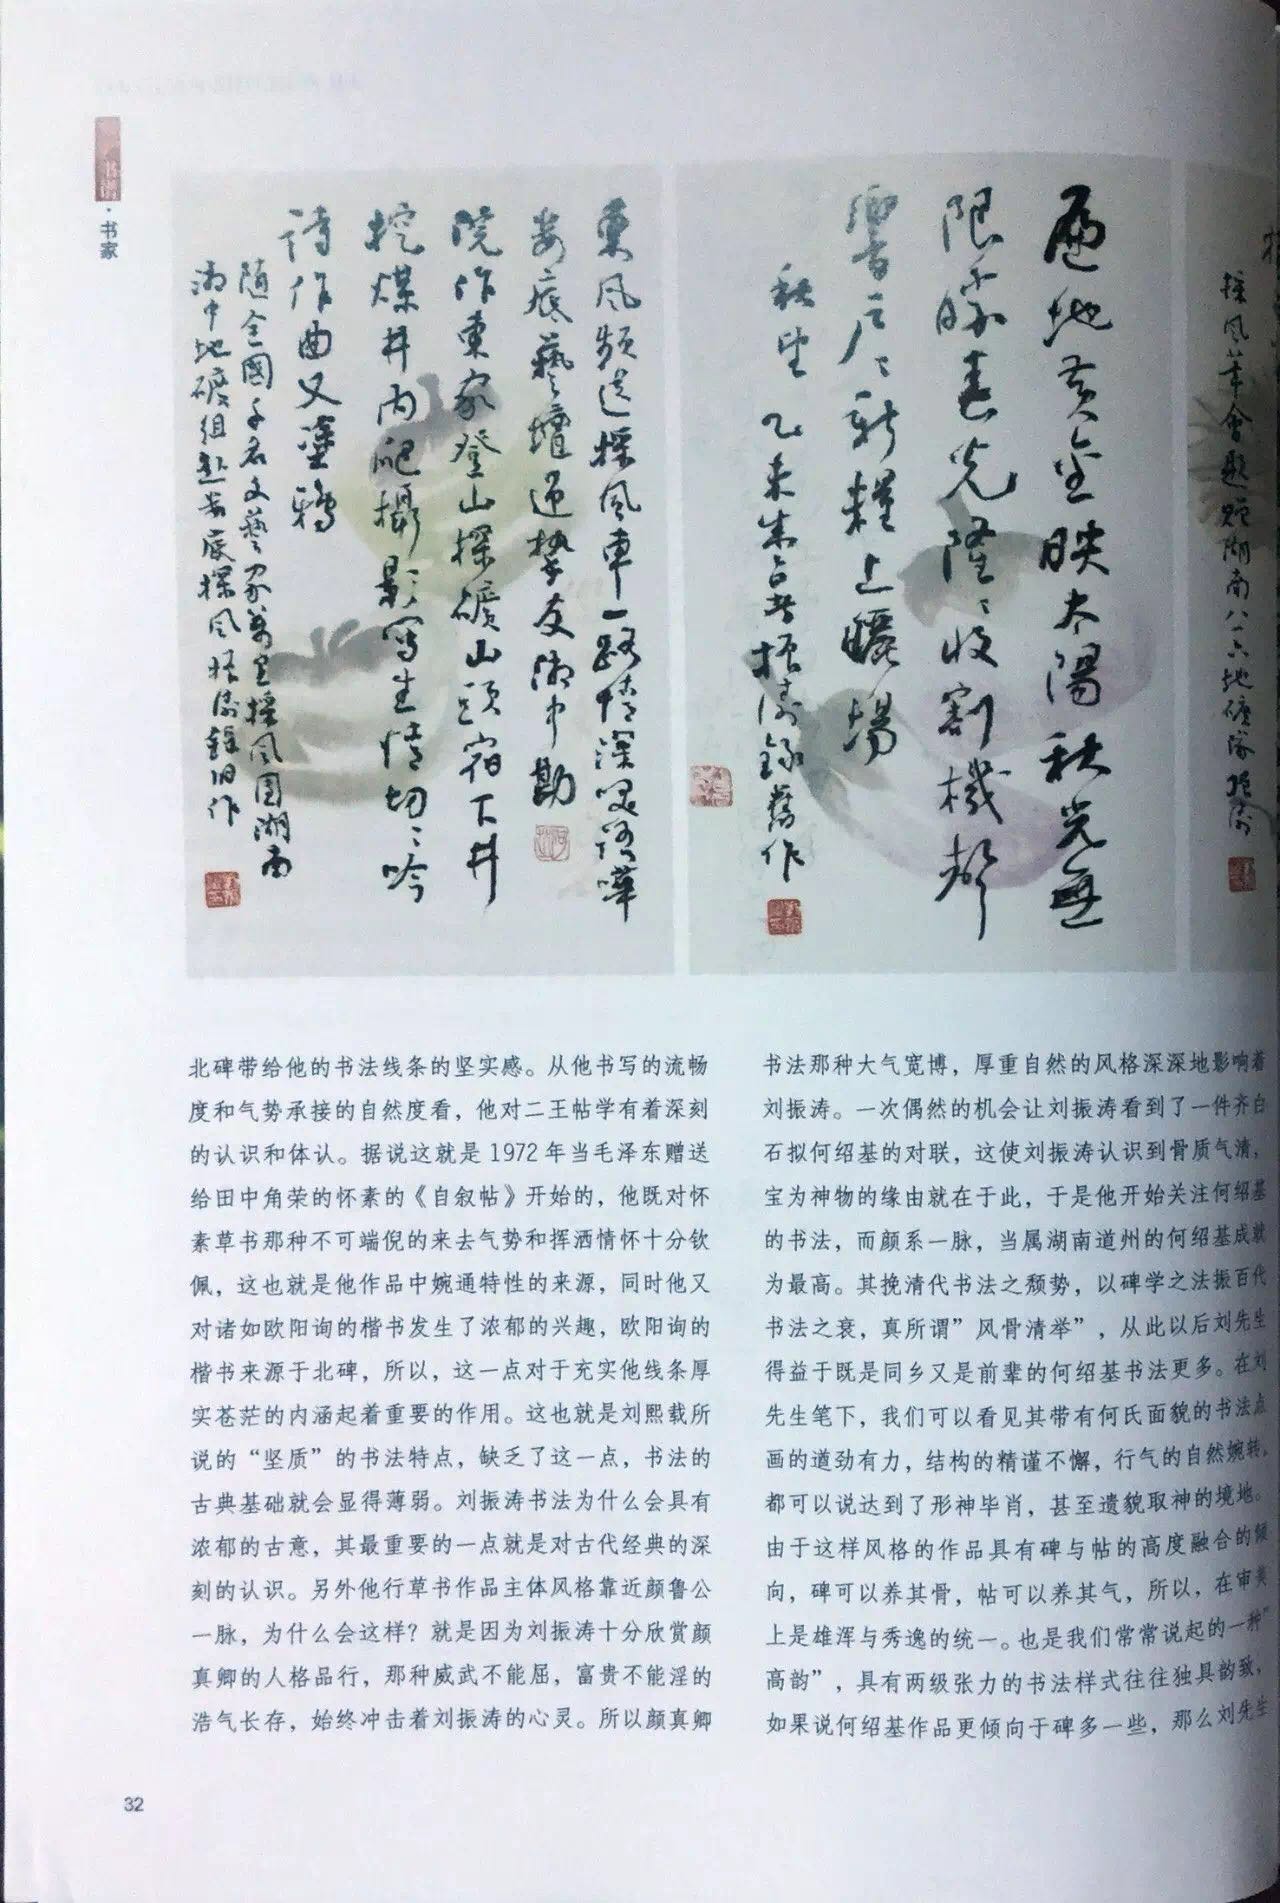 书谱
·书家
遍地黄金映太阳秋光无
限胜春光隆隆收割机都
响声声新粮上晒场
秋望 乙未朱台长振涛录旧作
東风频送採风車一路情深
娄底藝壇逢挚友湘中勘
院作東家登山探礦山頭宿下井
挖煤井内爬攝影寫生情切切吟
詩作曲又塗鴉
随全國千名文藝家萬里採风團湖南
湘中地礦組赴娄底採风振涛錄旧作
採風筆會題贈湖南八一六地礦隊振涛
北碑带给他的书法线条的坚实感。从他书写的流畅
度和气势承接的自然度看，他对二王帖学有着深刻
的认识和体认。据说这就是 1972 年当毛泽东赠送
给田中角荣的怀素的《自叙帖》开始的，他既对怀
素草书那种不可端倪的来去气势和挥洒情怀十分钦
佩，这也就是他作品中婉通特性的来源，同时他又
对诸如欧阳询的楷书发生了浓郁的兴趣，欧阳询的
楷书来源于北碑，所以，这一点对于充实他线条厚
实苍茫的内涵起着重要的作用。这也就是刘熙载所
说的“坚质”的书法特点，缺乏了这一点，书法的
古典基础就会显得薄弱。刘振涛书法为什么会具有
浓郁的古意，其最重要的一点就是对古代经典的深
刻的认识。另外他行草书作品主体风格靠近颜鲁公
一脉，为什么会这样？就是因为刘振涛十分欣赏颜
真卿的人格品行，那种威武不能屈，富贵不能淫的
浩气长存，始终冲击着刘振涛的心灵。所以颜真卿
书法那种大气宽博，厚重自然的风格深深地影响着
刘振涛。一次偶然的机会让刘振涛看到了一件齐白
石拟何绍基的对联，这使刘振涛认识到骨质气清，
宝为神物的缘由就在于此，于是他开始关注何绍基
的书法，而颜系一脉，当属湖南道州的何绍基成就
为最高。其挽清代书法之颓势，以碑学之法振百代
书法之衰，真所谓”风骨清举”，从此以后刘先生
得益于既是同乡又是前辈的何绍基书法更多。在刘
先生笔下，我们可以看见其带有何氏面貌的书法点
画的遒劲有力，结构的精谨不懈，行气的自然婉转，
都可以说达到了形神毕肖，甚至遗貌取神的境地。
由于这样风格的作品具有碑与帖的高度融合的倾
向，碑可以养其骨，帖可以养其气，所以，在审美
上是雄浑与秀逸的统一。也是我们常常说起的一种”
高韵”，具有两级张力的书法样式往往独具韵致，
如果说何绍基作品更倾向于碑多一些，那么刘先生
32